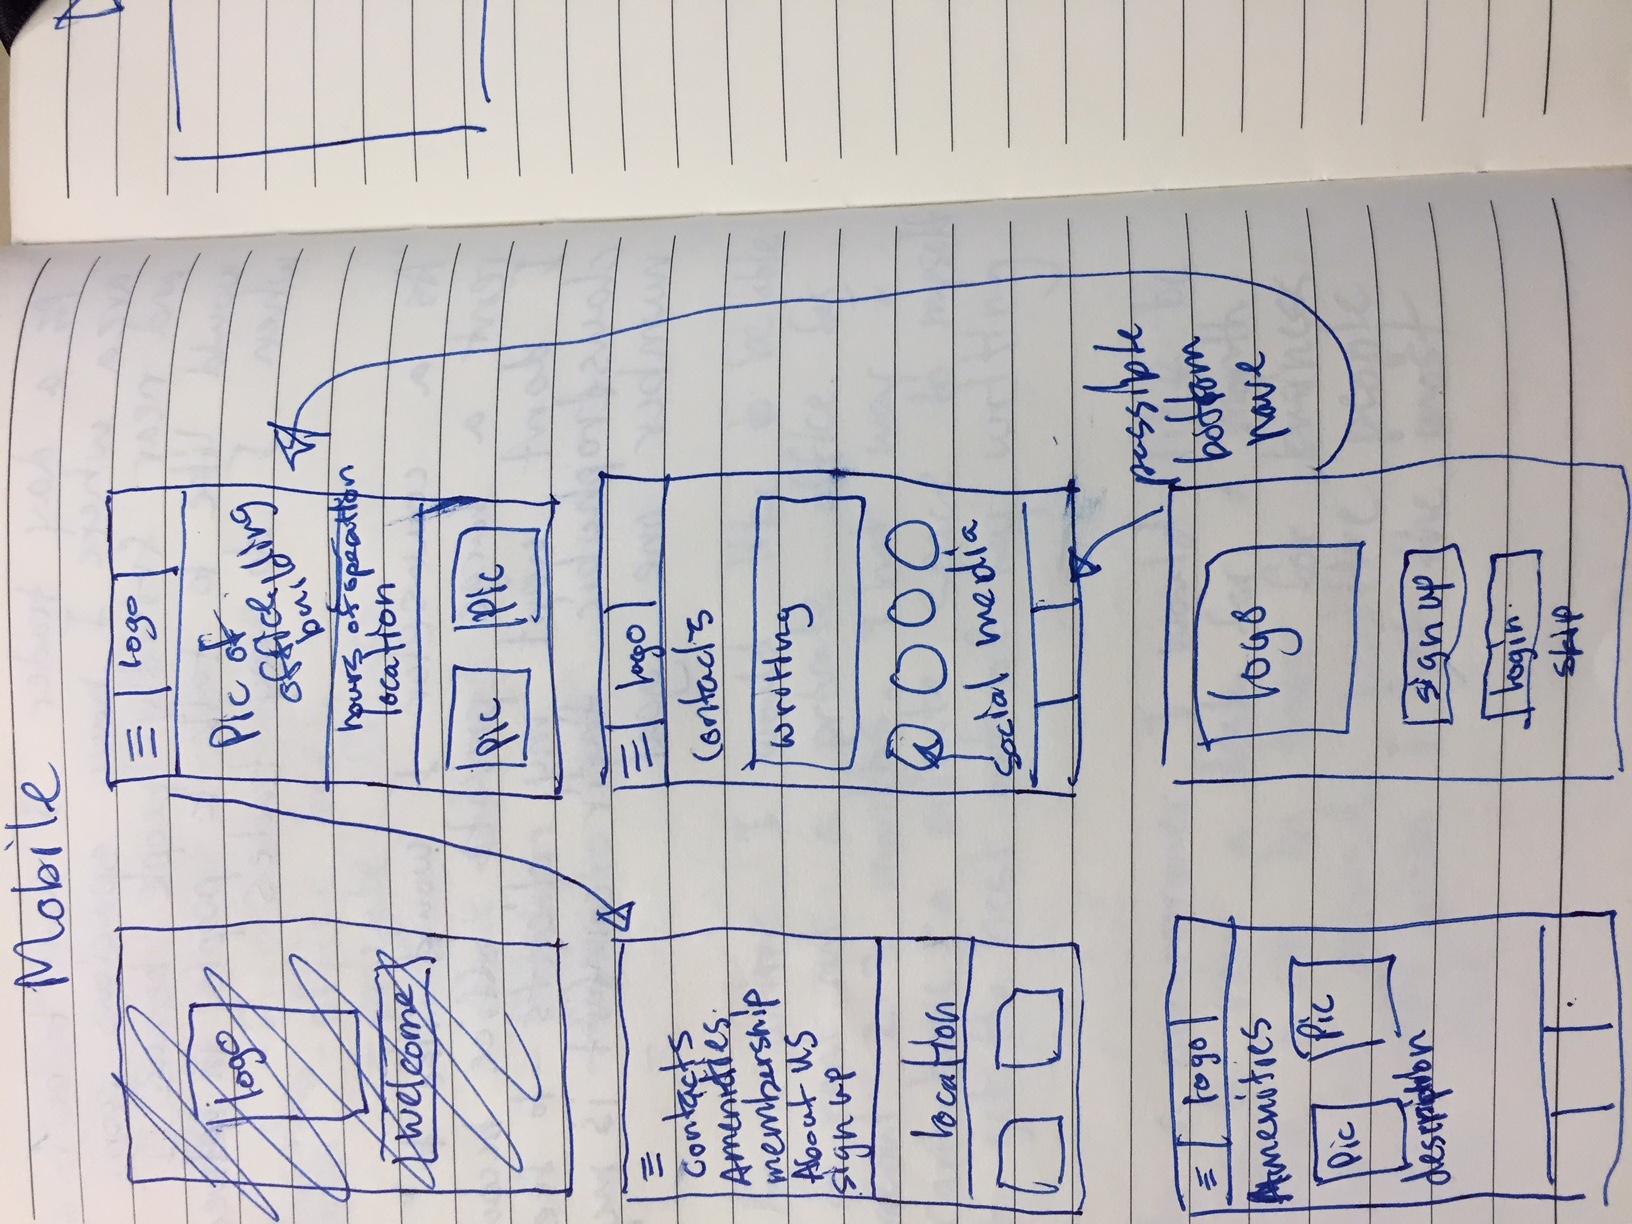 Mobile
logo
welcome
logo
Pic of
office
building
hours of operation
location
pic
pic
contacts
Amenities
membership
About US
sign up
location
logo
Contacts
writing
social media
possible
bottom
nave
logo
Amenities
Pic
Pic
description
logo
sign up
login
skip